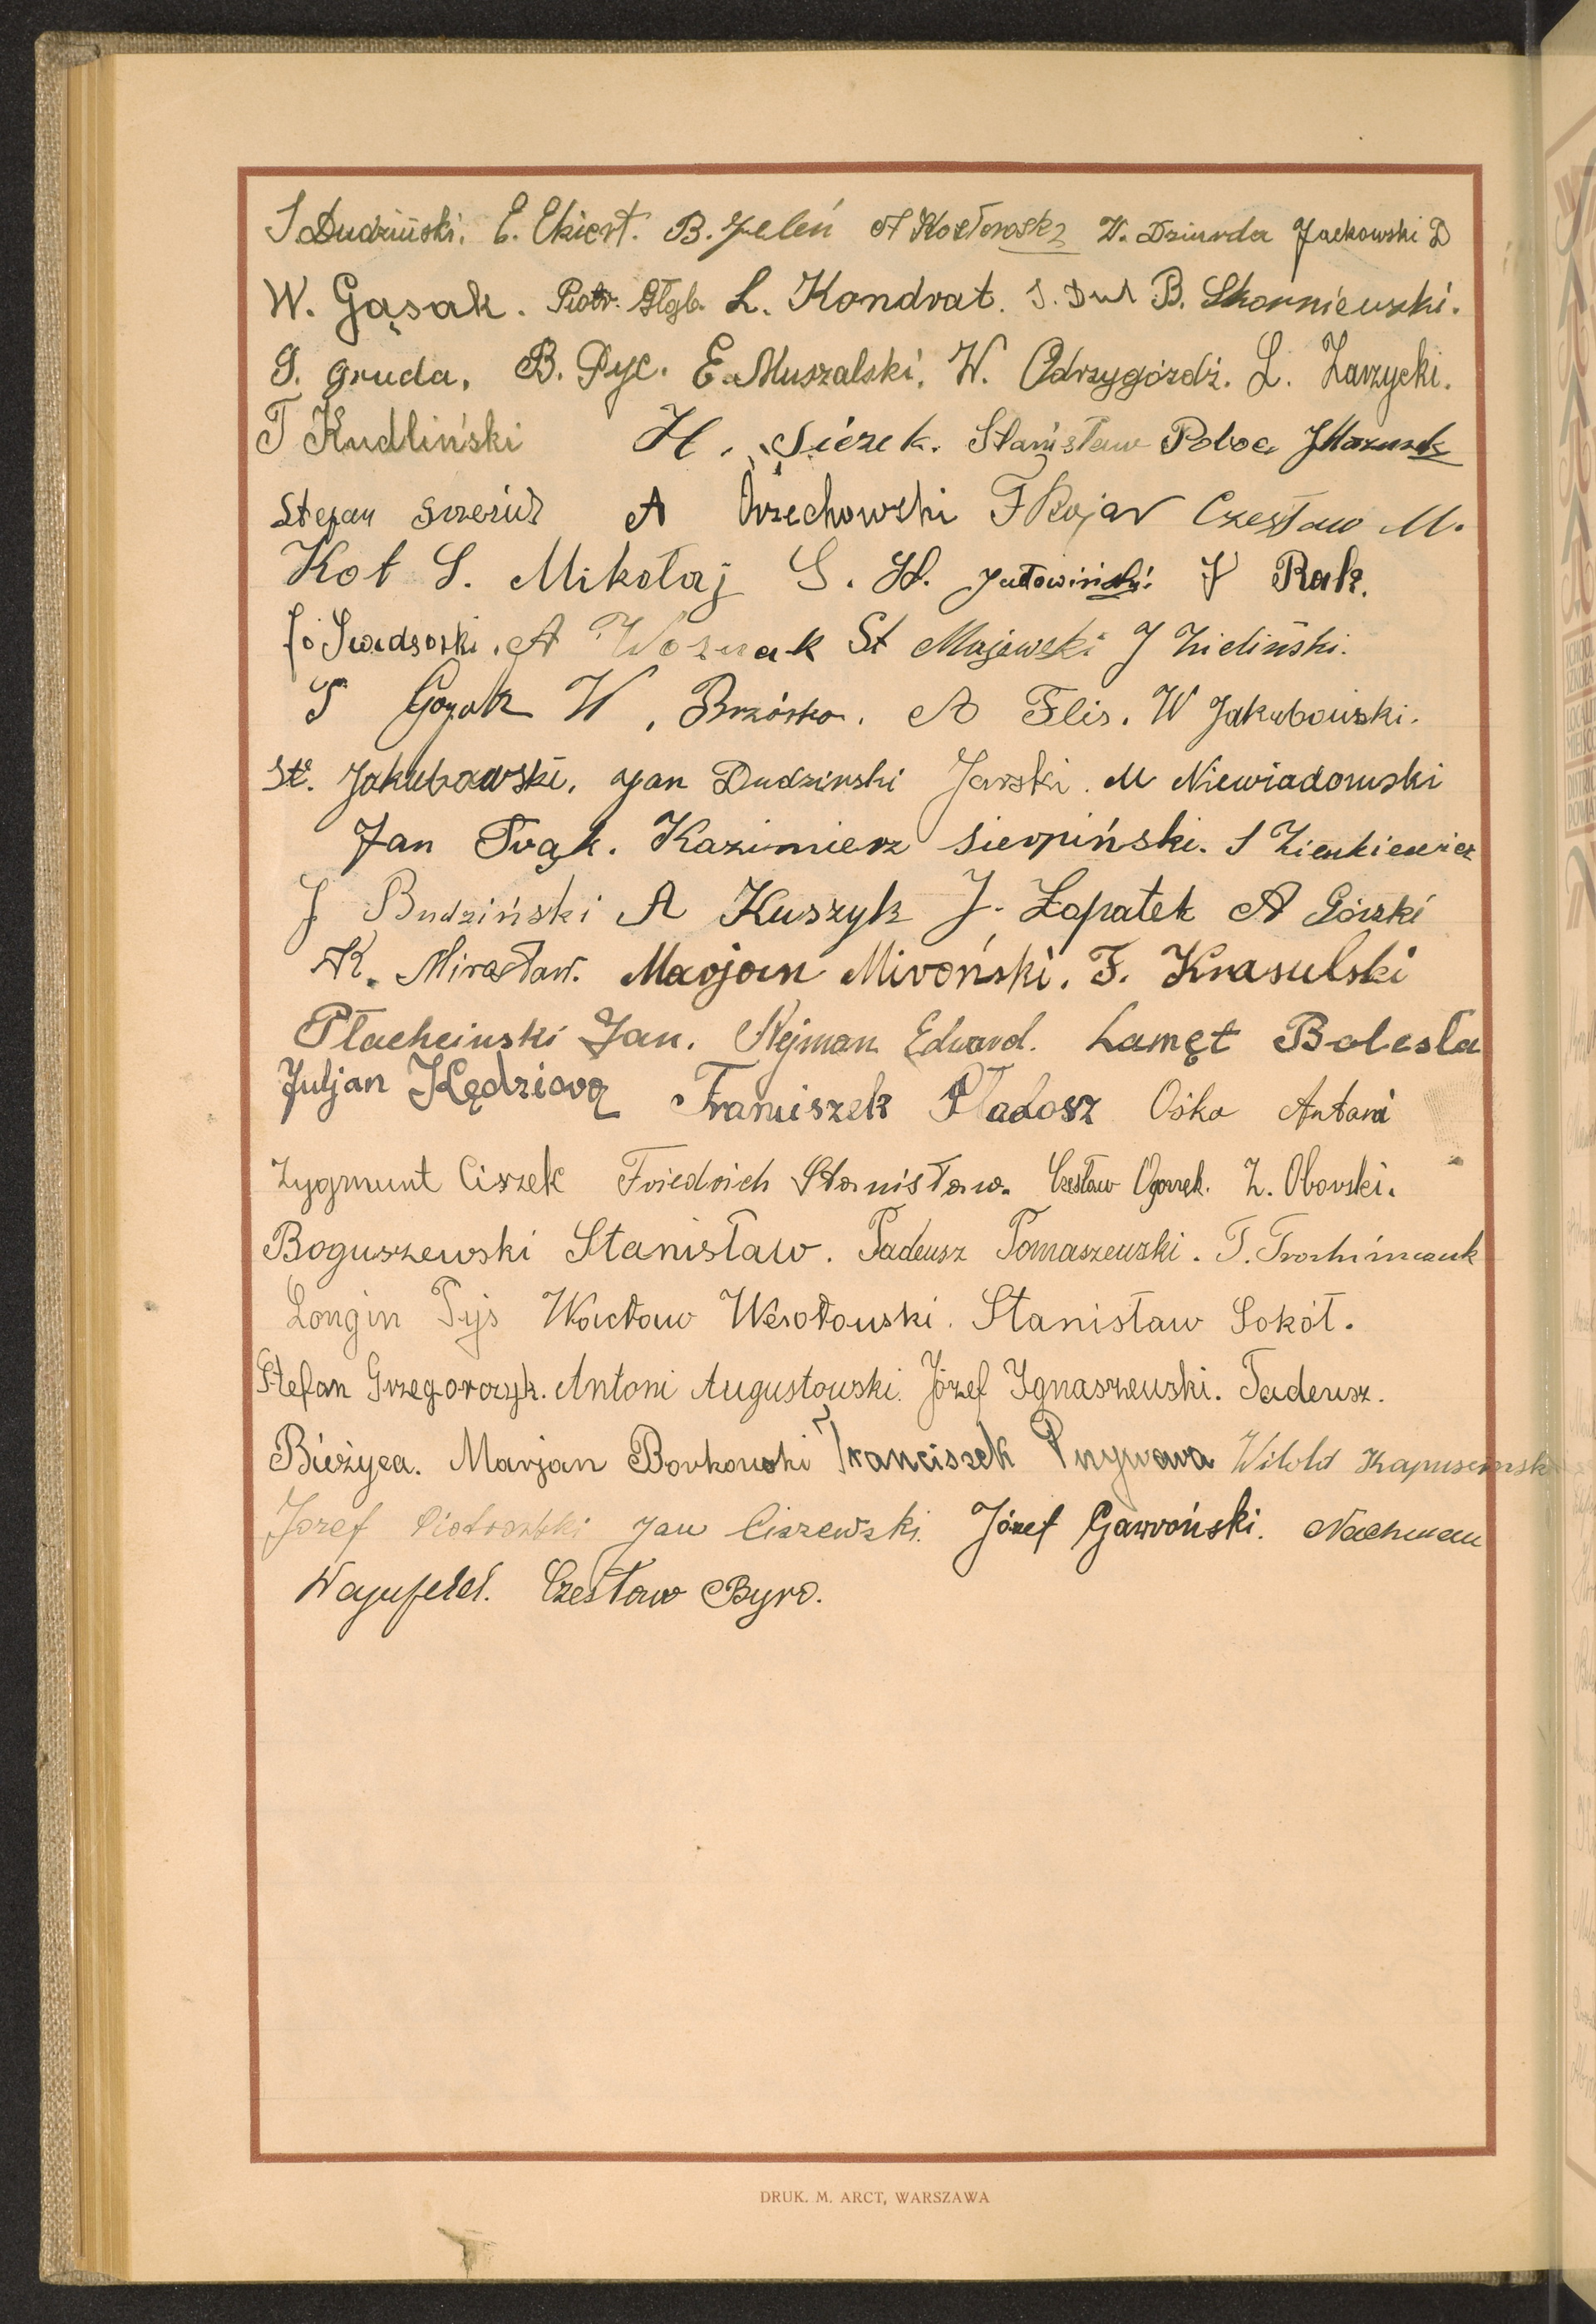 S Dudziński. E. Ekiert. B. Jeleń A Kozłowski W. Dziurda Jackowski D
W. Gąsak. Piotr. L. Kondrat. S. Dul B. Skorniewski.
S. Gruda. B. Pyc. E. Muszalski. W. Odrzygóźdź. L. Zarzycki.
T Kudliński H. Siczek. Stanisław J Mazurek
Stefan A Orzechowski F Rojar Czesław M.
Kot S. Mikołaj S. H. J Rak.
A Wozniak St Majewski J Zieliński.
S W. Brzósko. A Flis. W Jakubowski.
St. Jakubowski. Jan Dudzinski Jarski. M Niewiadomski
Jan Trąk. Kazimierz Sierpiński. S Zienkiewicz
J Budziński A Kuszyk J. Łopatek A Górski
K. Mirosław. Marjan Miroński. F. Krasulski
Płacheinski Jan. Nejman Edward. Lamęt Bolesła
Juljan Kędziora Franciszek Pładosz Ośka Antoni
Zygmunt Ciszek Friedrich Stanisław. Czesław Ogorek. Z. Oborski.
Boguszewski Stanisław. Tadeusz Tomaszewski. T. Trochimczuk
Longin Tys Wacław Wesołowski. Stanisław Sokół.
Stefan Grzegorczyk. Antoni Augustowski. Józef Ignaszewski. Tadeusz.
Bieżyca. Marjan Borkowski Franciszek Przywara Witold Kapuscinski
Jozef Piotrowski Jan Ciszewski. Józef Gawroński. Nachman
Wajnfeld. Czesław Byro.
DRUK. M. ARCT, WARSZAWA